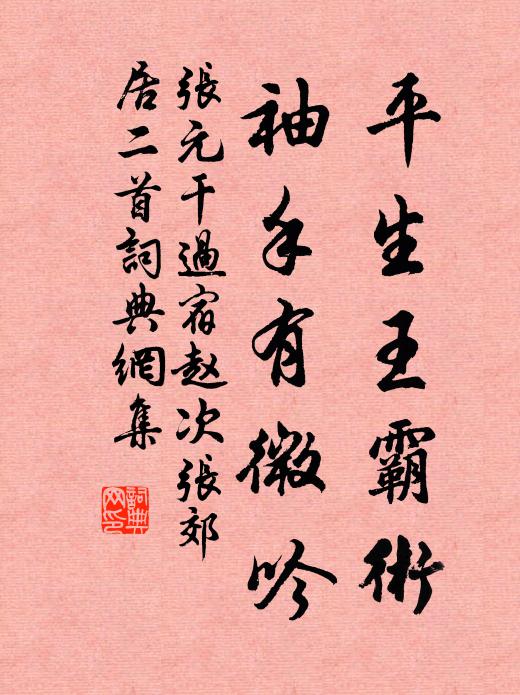 平生王霸術
袖手有微吟
張元干過宿赵次張郊
居二首詞典網集
詞典网印